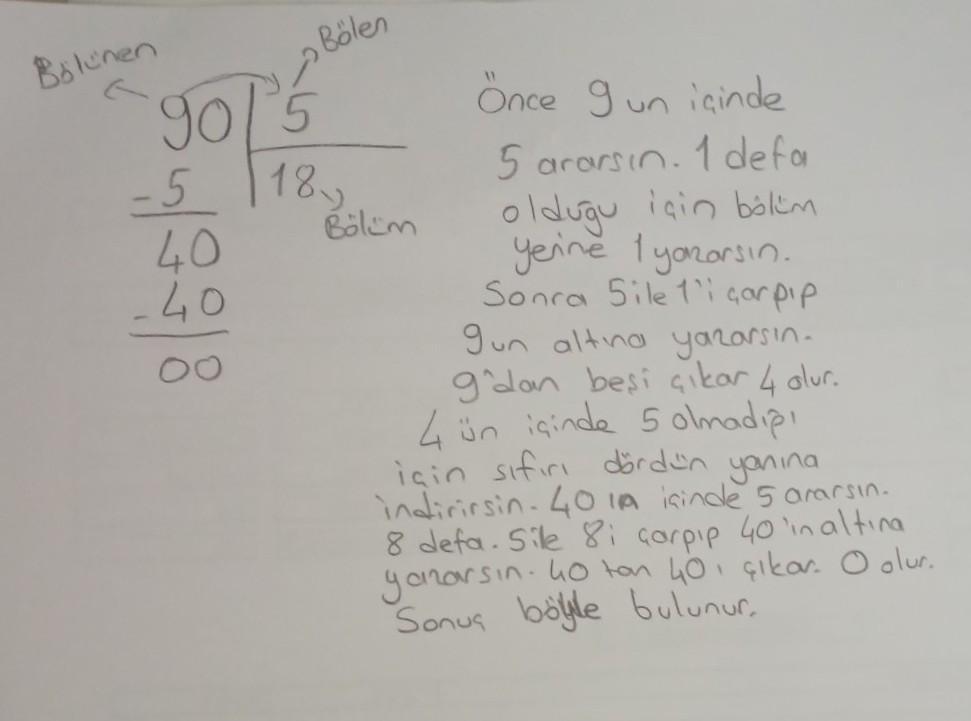 Bölünen
Bölen
90 5
-5 18
Bölüm
40
-40
00
Önce 9 un içinde
5 ararsın. 1 defa
olduğu için bölüm
yerine 1 yazarsın.
Sonra 5 ile 1'i çarpıp
9 un altına yazarsın.
9'dan beşi çıkar 4 olur.
4 ün içinde 5 olmadığı
için sıfırı dördün yanına
indirirsin. 40 ın içinde 5 ararsın.
8 defa. 5 ile 8 i çarpıp 40'ın altına
yazarsın. 40 tan 40 ı çıkar. 0 olur.
Sonuç böyle bulunur.